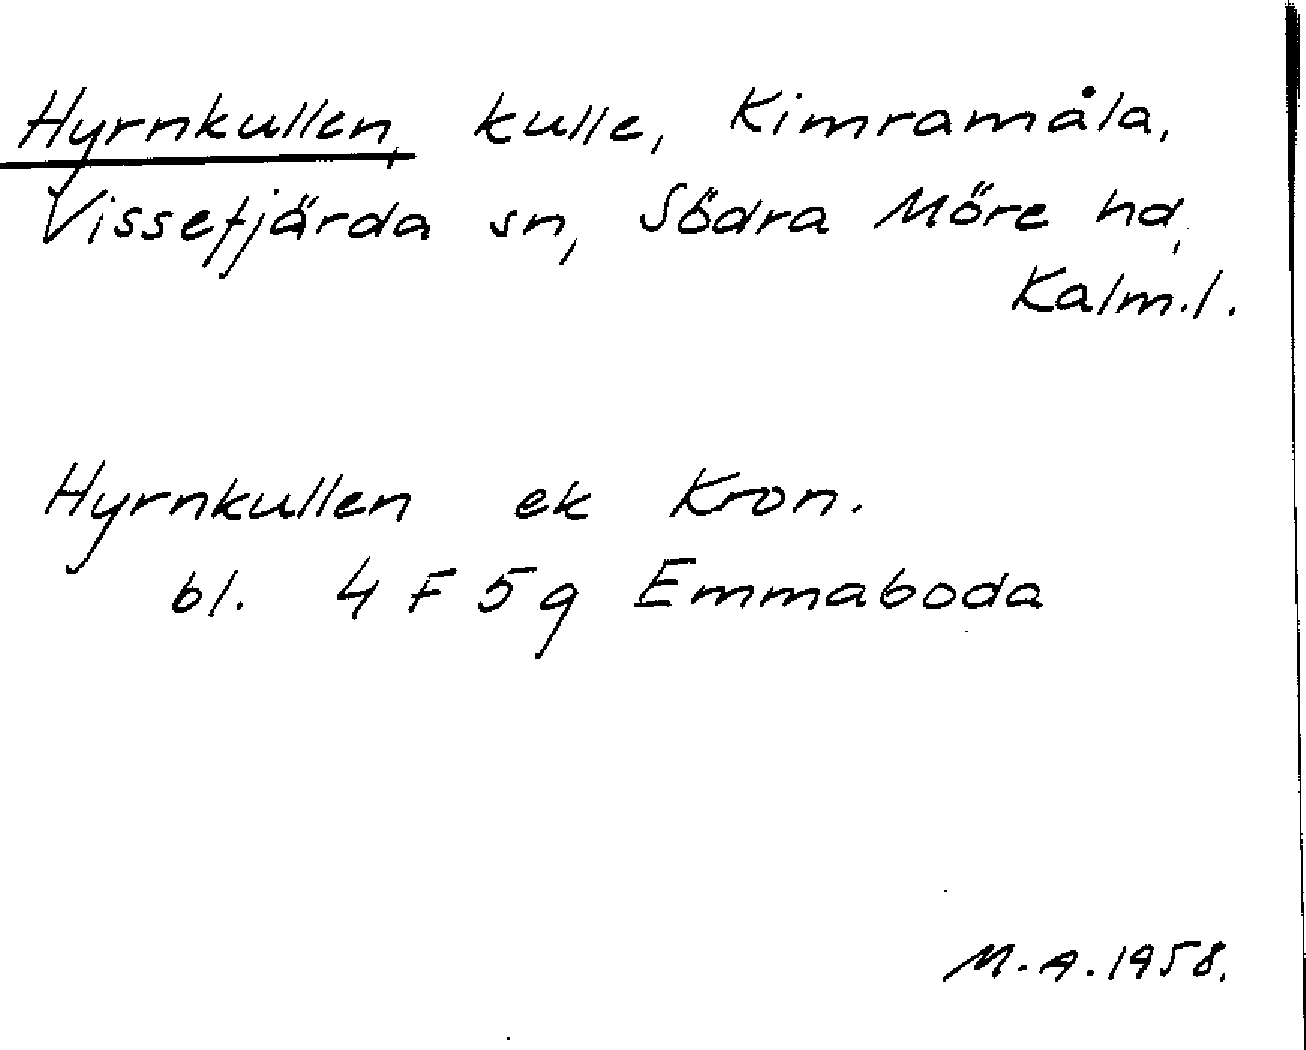 Hyrnkullen, kulle, Kimramåla,
Vissefjärda sn, Södra Möre hd,
Kalm.l.
Hyrnkullen ek Kron.
bl. 4 F 5 g Emmaboda
M.A. 1958.